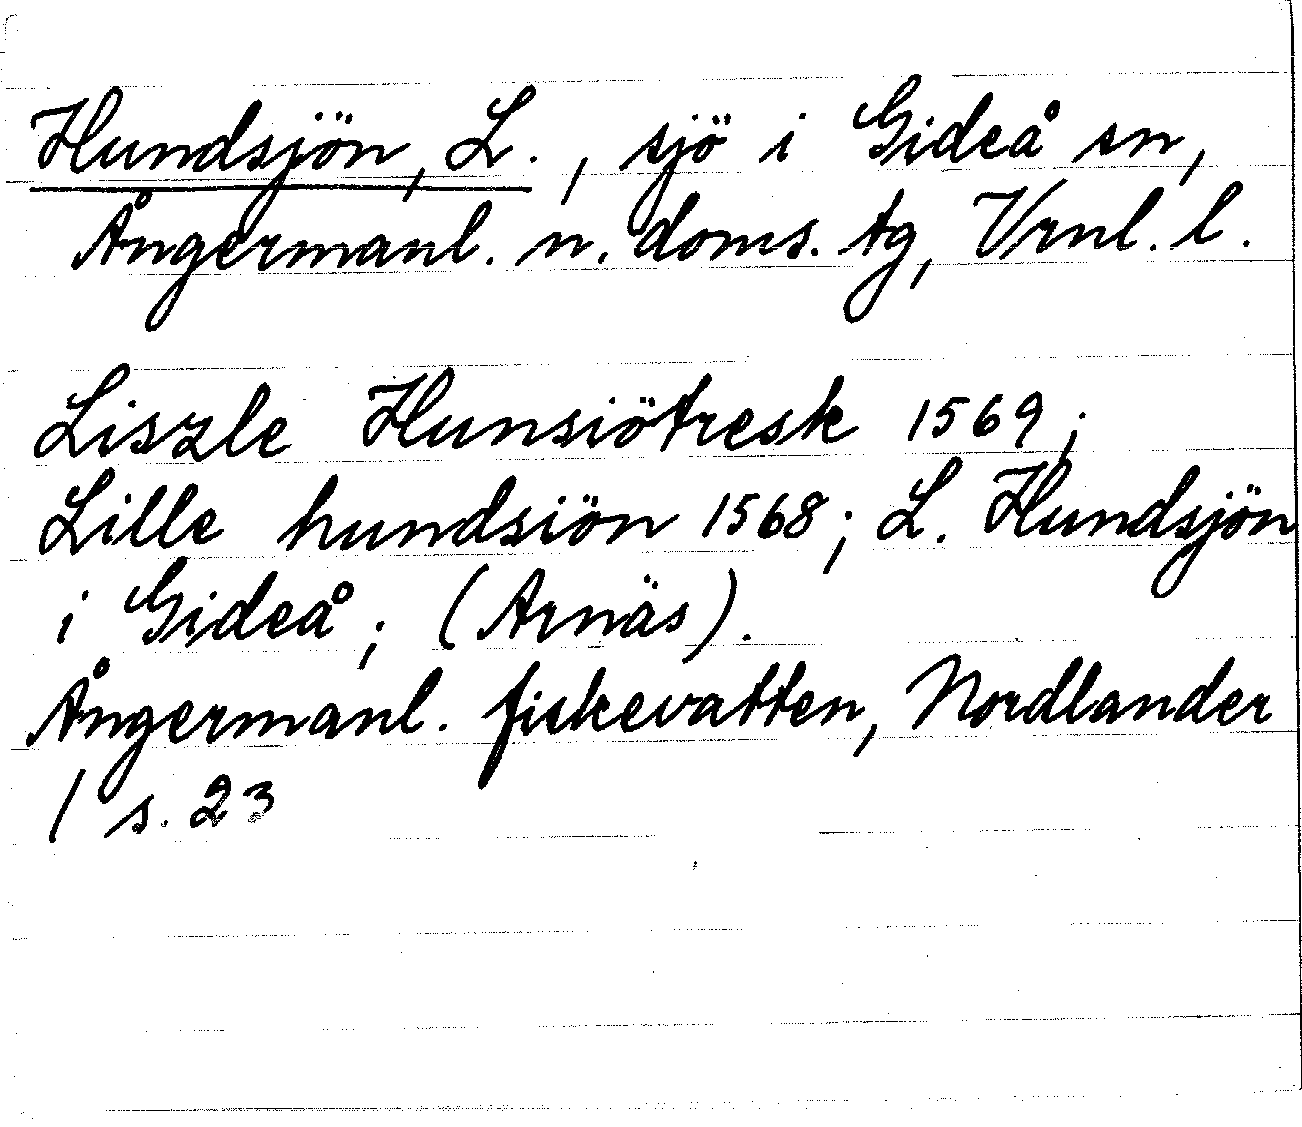 Hundsjön, L., sjö i Gideå sn,
Ångermanl. n. doms. tg, Vrnl. l.
Liszle Hunsiötresk 1569;
Lille hundsiön 1568; L. Hundsjön
i Gideå; (Arnäs).
Ångermanl. fiskevatten, Nordlander
/ s. 23